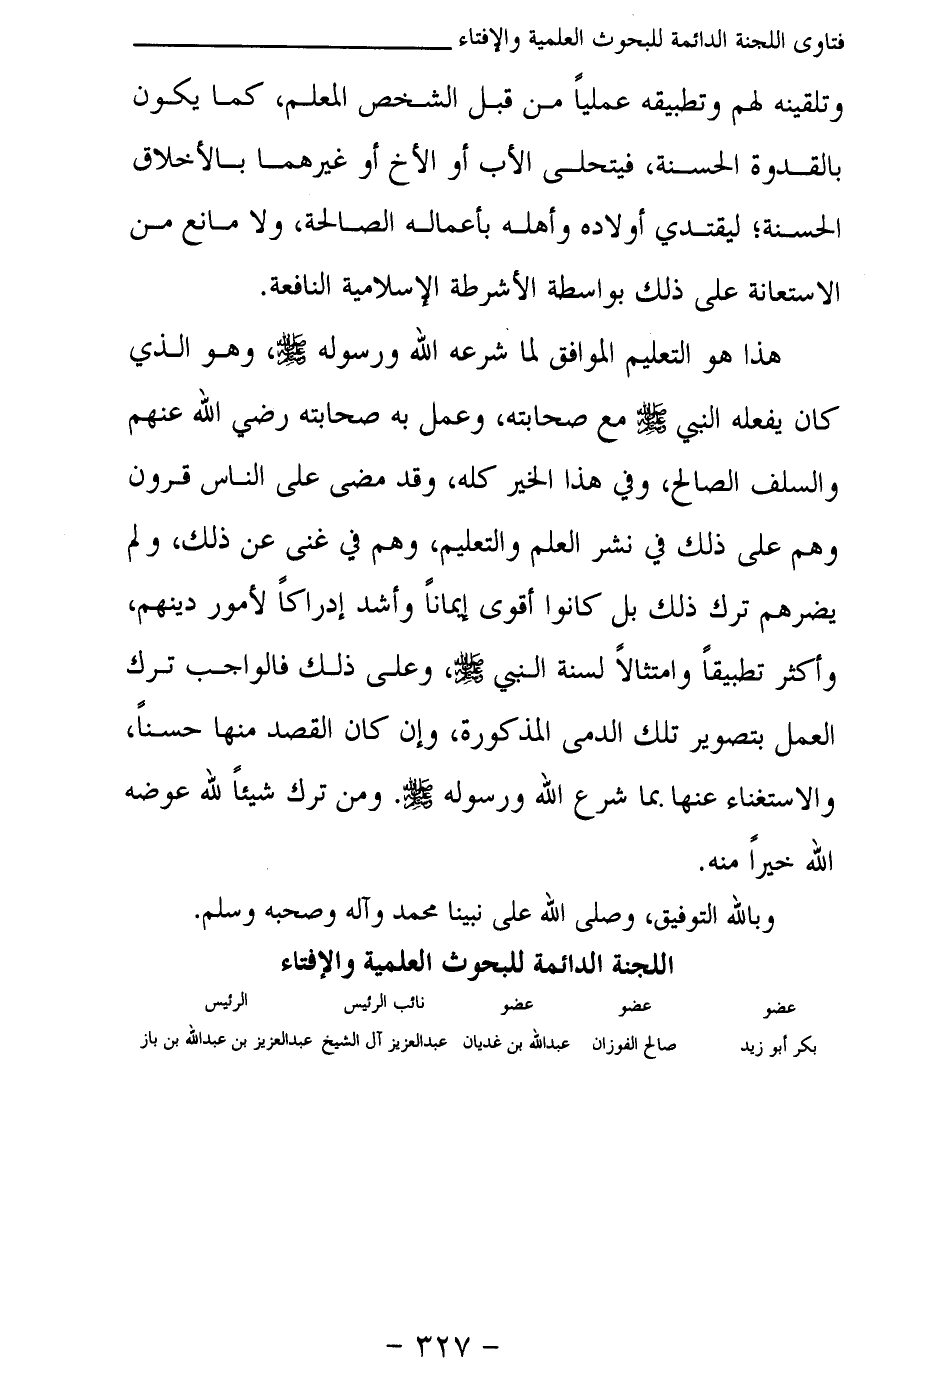 فتاوى اللجنة الدائمة للبحوث العلمية والإفتاء
وتلقينه لهم وتطبيقه عملياً من قبل الشخص المعلم، كما يكون
بالقدوة الحسنة، فيتحلى الأب أو الأخ أو غيرهما بالأخلاق
الحسنة؛ ليقتدي أولاده وأهله بأعماله الصالحة، ولا مانع من
الاستعانة على ذلك بواسطة الأشرطة الإسلامية النافعة.
هذا هو التعليم الموافق لما شرعه الله ورسوله ﷺ، وهو الذي
كان يفعله النبي ﷺ مع صحابته، وعمل به صحابته رضي الله عنهم
والسلف الصالح، وفي هذا الخير كله، وقد مضى على الناس قرون
وهم على ذلك في نشر العلم والتعليم، وهم في غنى عن ذلك، ولم
يضرهم ترك ذلك بل كانوا أقوى إيماناً وأشد إدراكاً لأمور دينهم،
وأكثر تطبيقاً وامتثالاً لسنة النبي ﷺ، وعلى ذلك فالواجب ترك
العمل بتصوير تلك الدمى المذكورة، وإن كان القصد منها حسناً،
والاستغناء عنها بما شرع الله ورسوله ﷺ. ومن ترك شيئاً لله عوضه
الله خيراً منه.
وبالله التوفيق، وصلى الله على نبينا محمد وآله وصحبه وسلم.
اللجنة الدائمة للبحوث العلمية والإفتاء
عضو عضو عضو نائب الرئيس الرئيس
بكر أبو زيد صالح الفوزان عبدالله بن غديان عبدالعزيز آل الشيخ عبدالعزيز بن عبدالله بن باز
- ٣٢٧ -